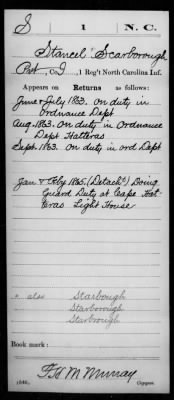 S 1 N. C.
Stancel Scarborough
Pvt, Co. I, 1 Reg't North Carolina Inf.
Appears on Returns as follows:
June & July 1863. On duty in
Ordnance Dept
Aug. 1863. On duty in Ordnance
Dept Hatteras
Sept. 1863. On duty in ord Dept
Jan & Feby 1865. (Detachd) Doing
Guard Duty at Cape Hat-
teras Light House
* also Starbough
Starborough
Starbrough
Book mark:
F. H. M. Murray
(546) Copyist.